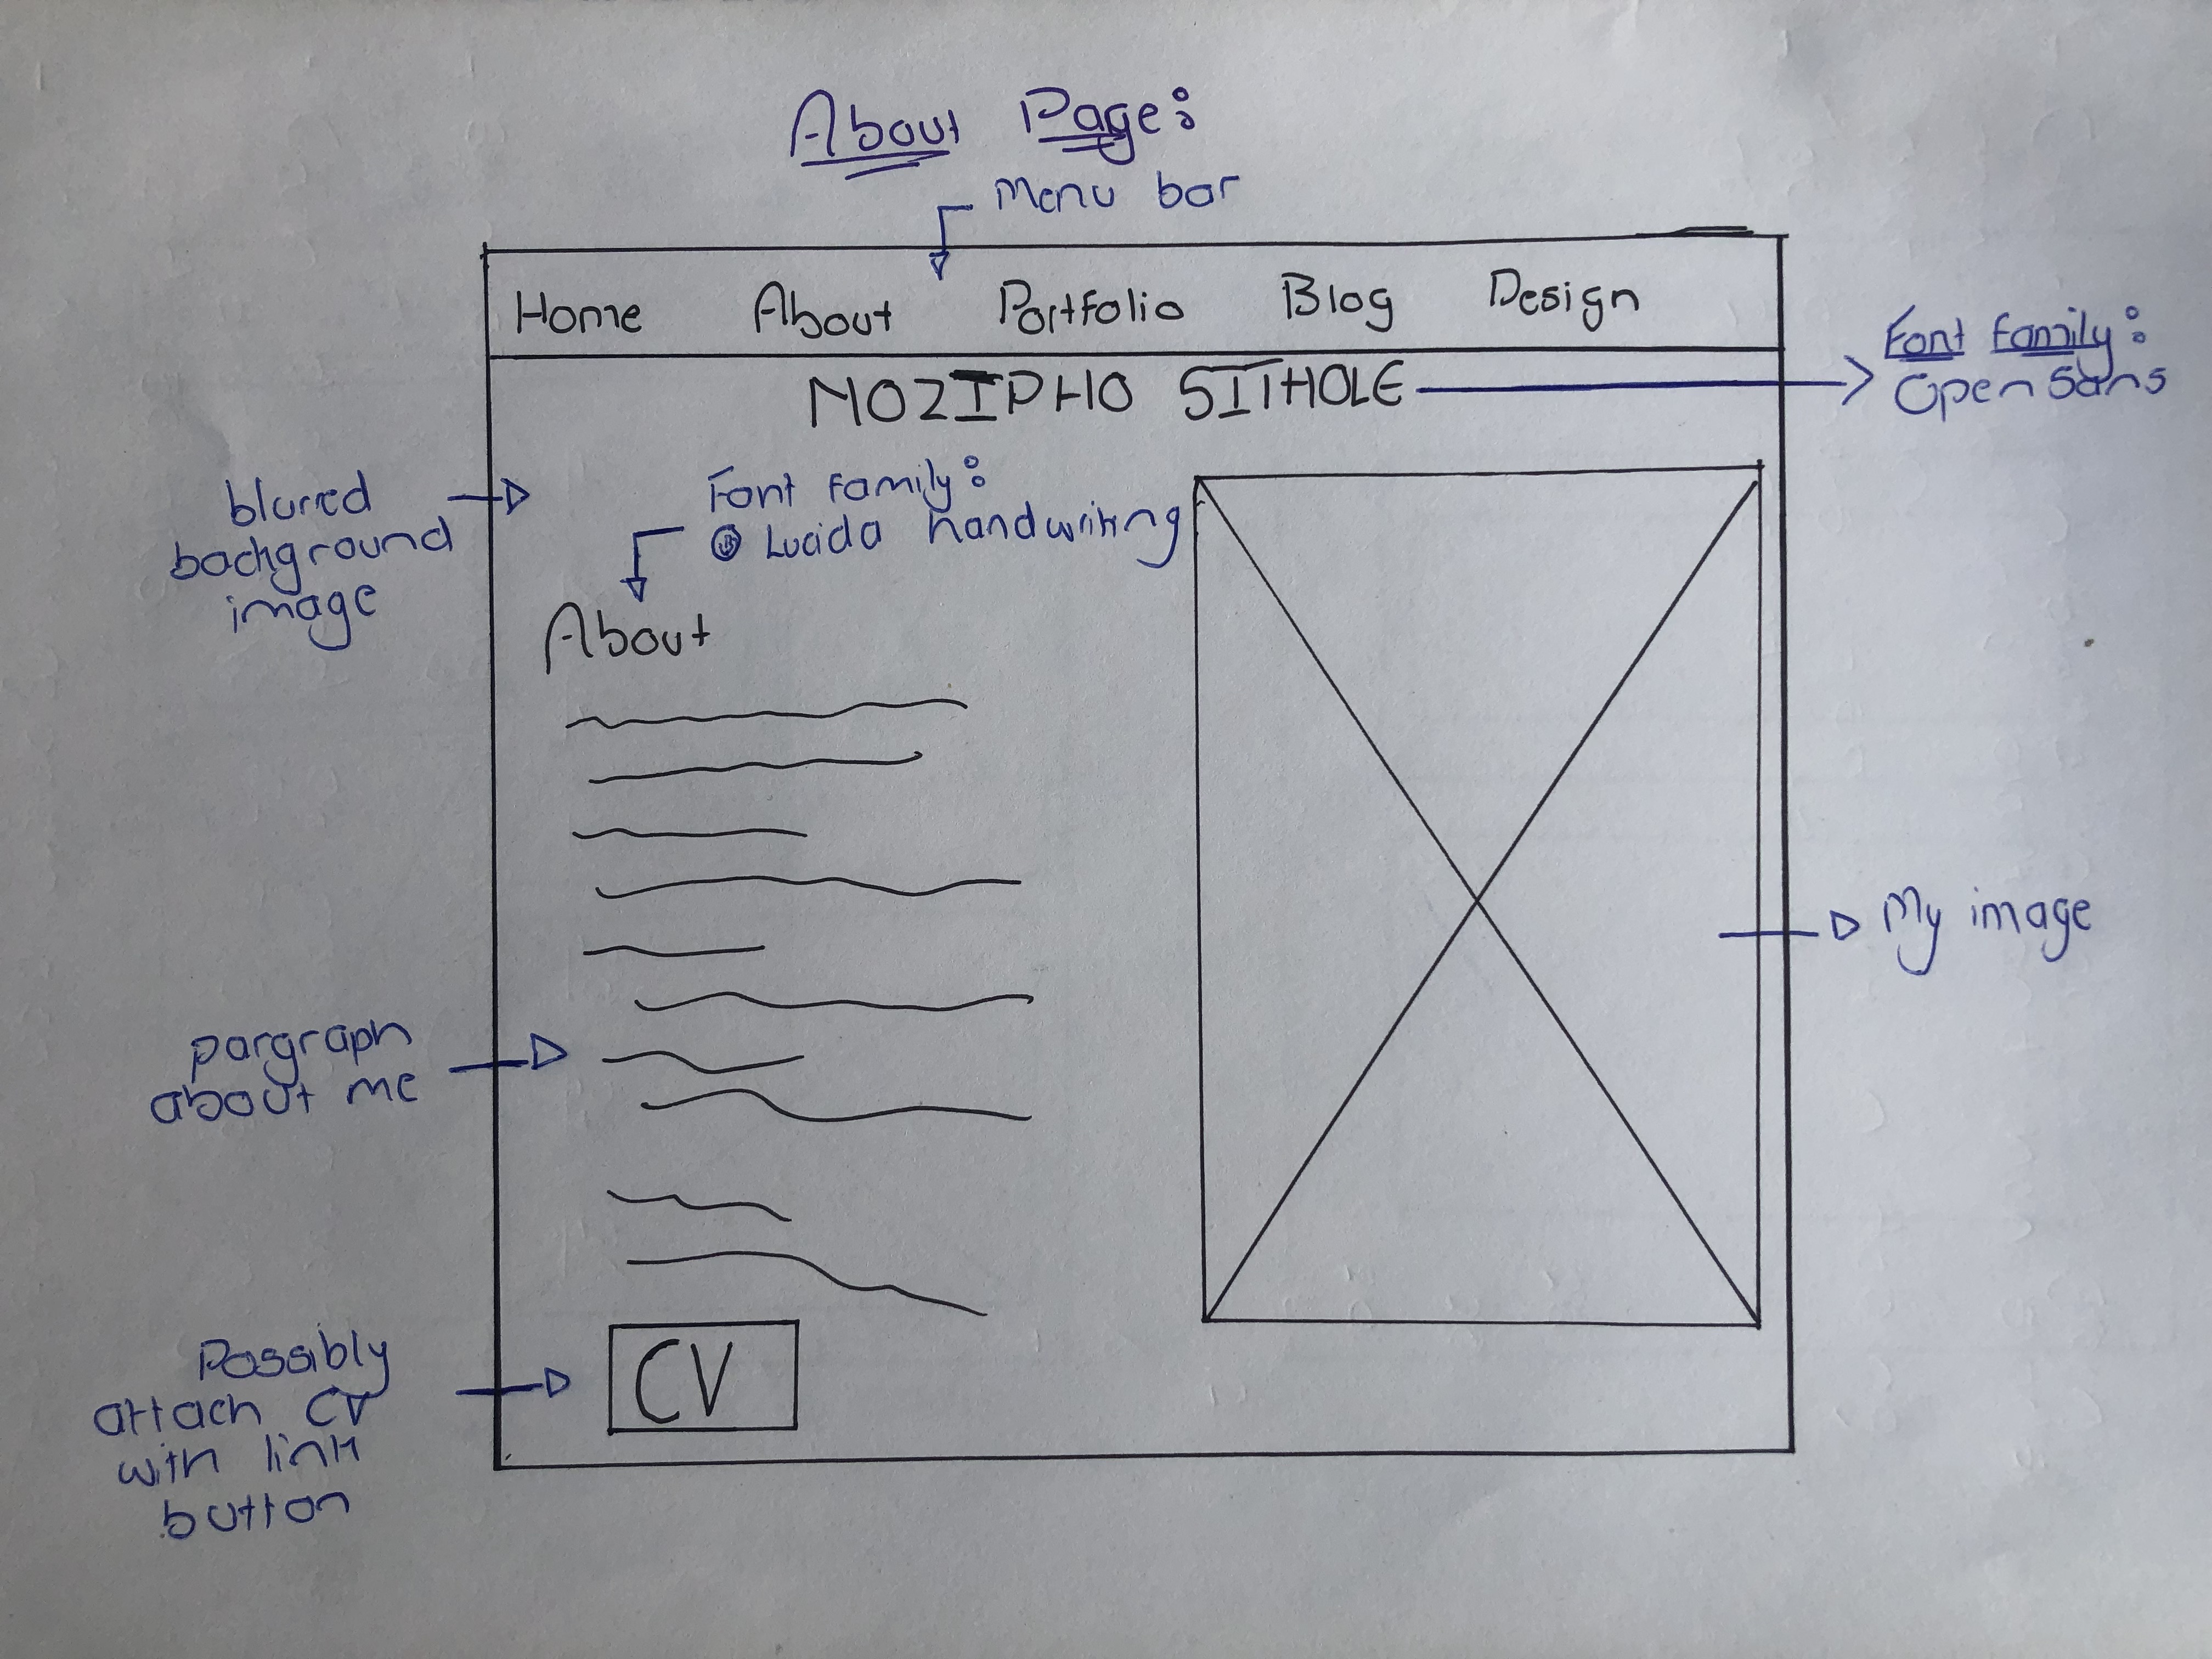 About Page:
Menu bar
Home About Portfolio Blog Design
NOZIPHO SITHOLE
Font family:
Open Sans
blurred
background
image
Font family:
Lucida handwriting
About
My image
pargraph
about me
CV
Possibly
attach CV
with link
button